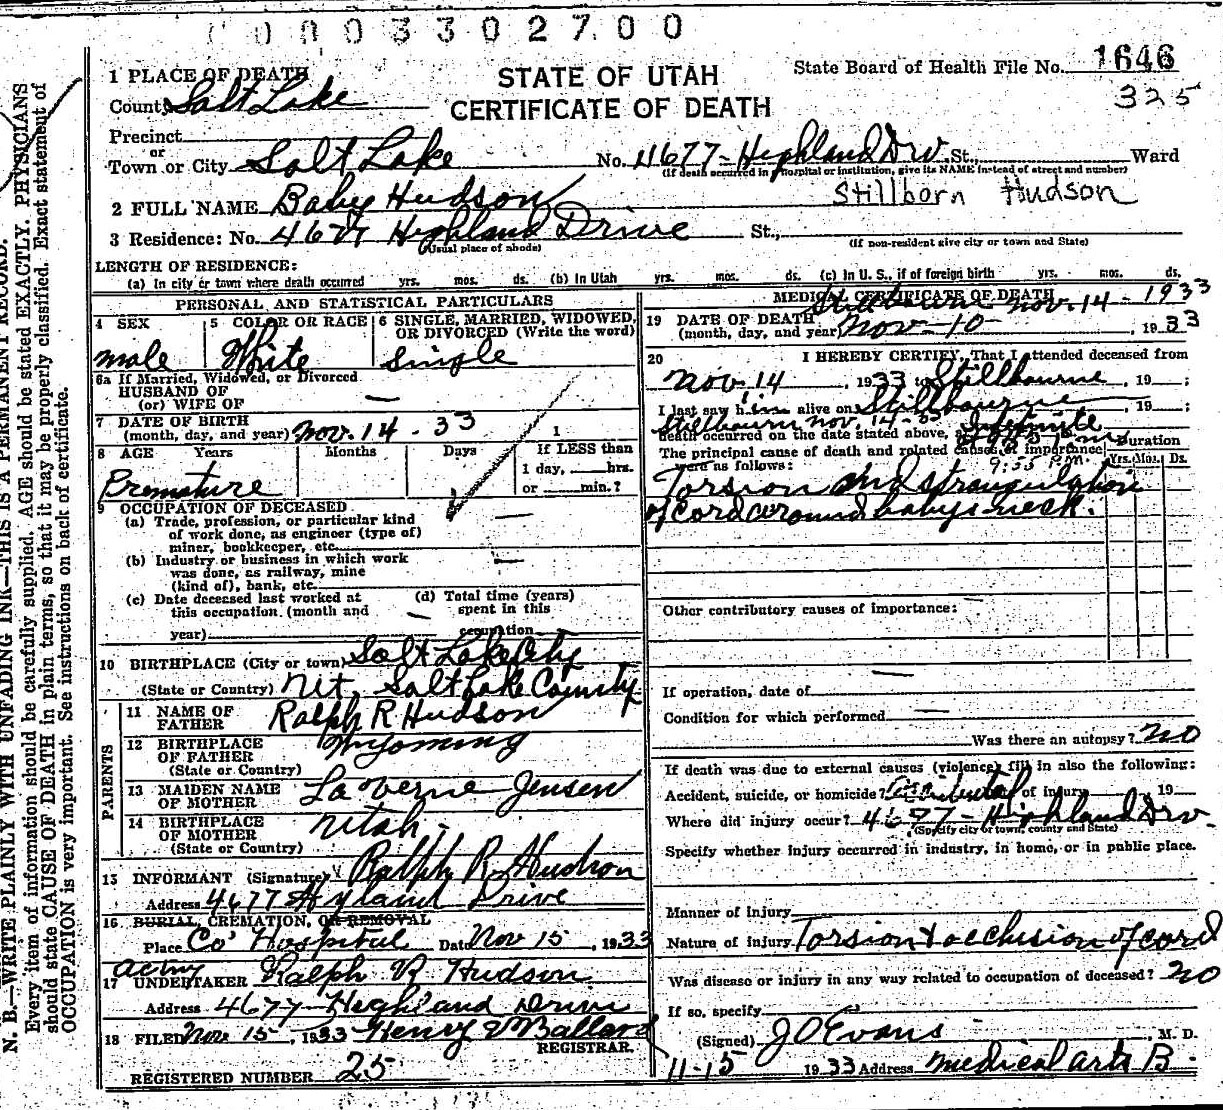 0003302700
STATE OF UTAH
CERTIFICATE OF DEATH
State Board of Health File No. 1646
325
1 PLACE OF DEATH
County Salt Lake
Precinct
or
Town or City Salt Lake No. 4677 - Highland Drv. St., Ward
(If death occurred in a hospital or institution, give its NAME instead of street and number)
2 FULL NAME Baby Hudson Stillborn Hudson
3 Residence: No. 4677 Highland Drive St.,
(Usual place of abode) (If non-resident give city or town and State)
LENGTH OF RESIDENCE:
(a) In city or town where death occurred yrs. mos. ds. (b) In Utah yrs. mos. ds. (c) In U. S., if of foreign birth yrs. mos. ds.
PERSONAL AND STATISTICAL PARTICULARS
4 SEX 5 COLOR OR RACE 6 SINGLE, MARRIED, WIDOWED, OR DIVORCED (Write the word)
male White Single
6a If Married, Widowed, or Divorced
HUSBAND OF
(or) WIFE OF —
7 DATE OF BIRTH
(month, day, and year) Nov. 14 - 33
8 AGE Years Months Days If LESS than
1 day, hrs.
or min.?
Premature
9 OCCUPATION OF DECEASED
(a) Trade, profession, or particular kind
of work done, as engineer (type of)
miner, bookkeeper, etc. —
(b) Industry or business in which work
was done, as railway, mine
(kind of), bank, etc. —
(c) Date deceased last worked at
this occupation (month and
year)
(d) Total time (years)
spent in this
occupation —
10 BIRTHPLACE (City or town) Salt Lake City
(State or Country) Ut, Salt Lake County
PARENTS
11 NAME OF
FATHER Ralph R Hudson
12 BIRTHPLACE
OF FATHER Wyoming
(State or Country)
13 MAIDEN NAME
OF MOTHER La Verne Jensen
14 BIRTHPLACE
OF MOTHER Utah
(State or Country)
15 INFORMANT (Signature) Ralph R. Hudson
Address 4677 Hyland Drive
16 BURIAL, CREMATION, OR REMOVAL
Place Co Hospital Date Nov 15, 1933
acting
17 UNDERTAKER Ralph R Hudson
Address 4677 Highland Drive
18 FILED Nov 15, 1933 Henry Ballard
REGISTRAR.
REGISTERED NUMBER 25
MEDICAL CERTIFICATE OF DEATH
Stillbourn Nov. 14 - 1933
19 DATE OF DEATH
(month, day, and year) Nov - 10 - , 1933
20 I HEREBY CERTIFY, That I attended deceased from
Nov. 14, 1933 to Stillbourne, 19 ;
I last saw him alive on Stillbourne, 19 ;
Stillbourn Nov. 14 - 33 Indefinite
death occurred on the date stated above,
The principal cause of death and related causes of importance
were as follows: 9:55 P.M.
Duration
Yrs. Mos. Ds.
Torsion and strangulation
of cord around babys neck.
Other contributory causes of importance:
If operation, date of —
Condition for which performed —
Was there an autopsy? no
If death was due to external causes (violence) fill in also the following:
Accident, suicide, or homicide? Accidental of injury , 19
Where did injury occur? 4677 - Highland Drv.
(Specify city or town, county and State)
Specify whether injury occurred in industry, in home, or in public place.
Manner of injury
Nature of injury Torsion & occlusion of cord
Was disease or injury in any way related to occupation of deceased? no
If so, specify
(Signed) J O Evans M. D.
11-15 1933 Address Medical Arts B.
N. B.—WRITE PLAINLY WITH UNFADING INK—THIS IS A PERMANENT RECORD.
Every item of information should be carefully supplied. AGE should be stated EXACTLY. PHYSICIANS
should state CAUSE OF DEATH in plain terms, so that it may be properly classified. Exact statement of
OCCUPATION is very important. See instructions on back of certificate.